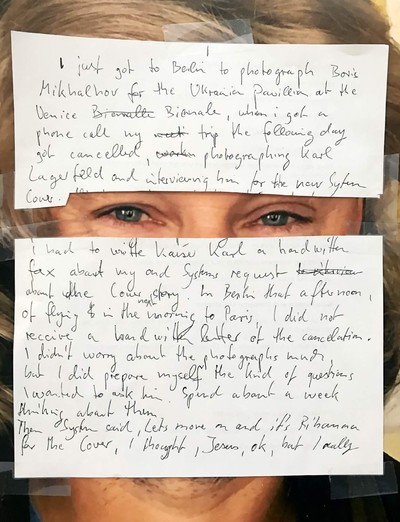 I just got to Berlin to photograph Boris
Mikhailhov for the Ukranian Pavillion at the
Venice Biennalle Biennale, when i got a
phone call my trip the following day
got cancelled, photographing Karl
Lagerfeld and interviewing him for the new System
Cover.
I had to write Kaiser Karl a handwritten
fax about my and Systems request
about the Cover story. In Berlin that afternoon,
of flying in the next morning to Paris, I did not
receive a hand letter of the cancelation.
I didn't worry about the photographs much,
but I did prepare myself the kind of questions
I wanted to ask him. Spend about a week
thinking about them.
Then System said, Lets move on and it's Rihanna
for the Cover, I thought, Jesus, ok, but I really